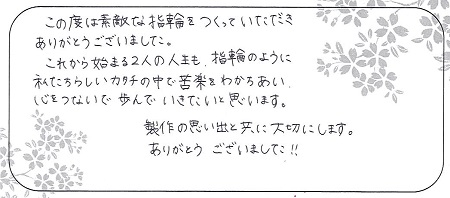 この度は素敵な指輪をつくっていただき
ありがとうございました。
これから始まる2人の人生も、指輪のように
私たちらしいカタチの中で苦楽をわかちあい、
心をつないで歩んでいきたいと思います。
製作の思い出と共に大切にします。
ありがとうございました!!